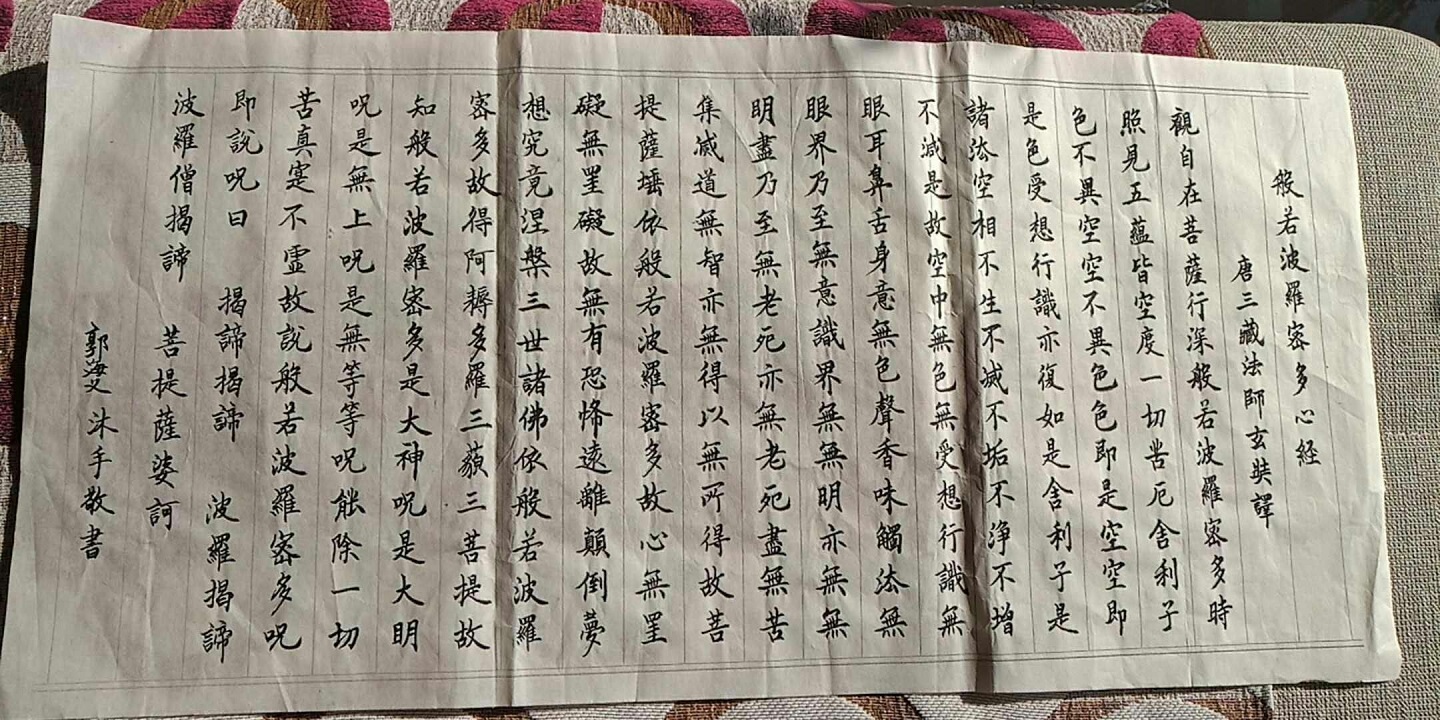 般若波羅密多心経
唐三藏法師玄奘譯
觀自在菩薩行深般若波羅密多時
照見五蘊皆空度一切苦厄舍利子
色不異空空不異色色即是空空即
是色受想行識亦復如是舍利子是
諸法空相不生不滅不垢不淨不增
不減是故空中無色無受想行識無
眼耳鼻舌身意無色聲香味觸法無
眼界乃至無意識界無無明亦無無
明盡乃至無老死亦無老死盡無苦
集滅道無智亦無得以無所得故菩
提薩埵依般若波羅密多故心無罣
礙無罣礙故無有恐怖遠離顛倒夢
想究竟涅槃三世諸佛依般若波羅
密多故得阿耨多羅三藐三菩提故
知般若波羅密多是大神呪是大明
呪是無上呪是無等等呪能除一切
苦真寔不虛故說般若波羅密多呪
即說呪曰 揭諦揭諦 波羅揭諦
波羅僧揭諦 菩提薩婆訶
郭海 沐手敬書